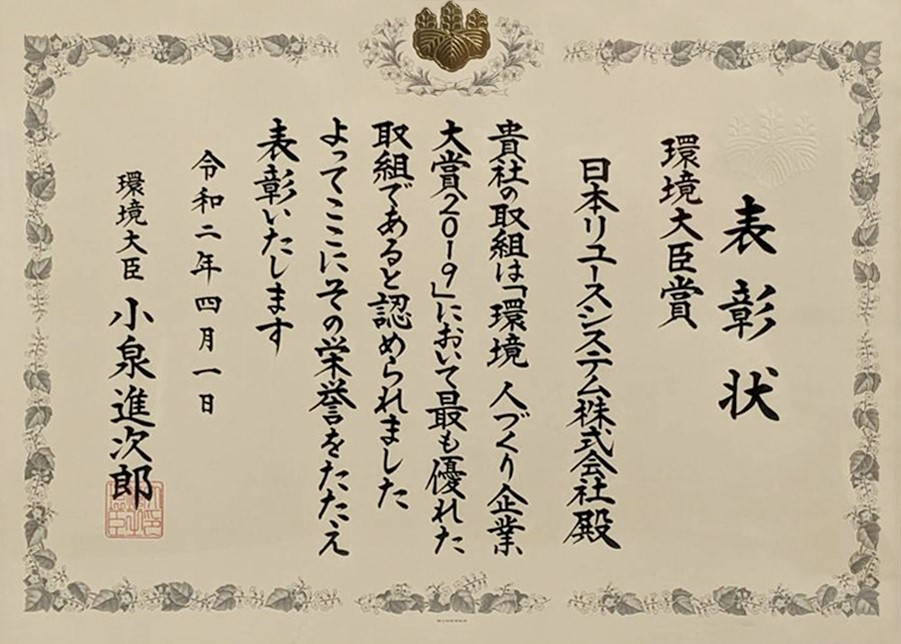 表彰状
環境大臣賞
日本リユースシステム株式会社殿
貴社の取組は「環境 人づくり企業
大賞2019」において最も優れた
取組であると認められました
よってここにその栄誉をたたえ
表彰いたします
令和二年四月一日
環境大臣 小泉進次郎